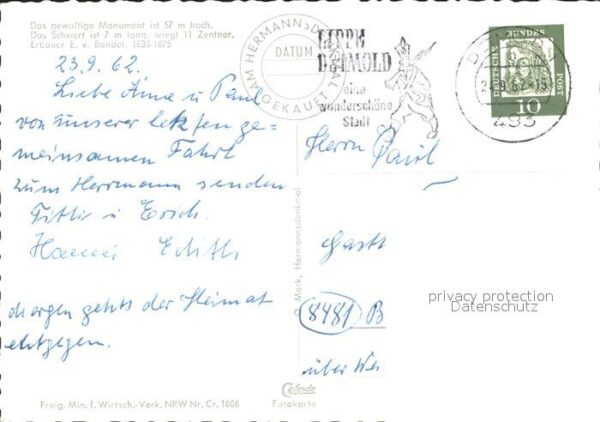 Das gewaltige Monument ist 57 m hoch.
Das Schwert ist 7 m lang, wiegt 11 Zentner.
Erbauer E. v. Bandel. 1833-1875
23.9.62.
Liebe Änne u Paul
von unserer letzten ge-
meinsamen Fahrt
zum Herrmann senden
u. Erich.
Hanni Edith
Morgen gehts der Heimat
entgegen.
Freig. Min. f. Wirtsch.-Verk. NRW Nr. Cr. 1006
AM HERMANNSDENKMAL
DATUM
GEKAUFT
LIPPE
DETMOLD
eine
wunderschöne
Stadt
DEUTSCHE BUNDESPOST
10
493
Herrn Paul
8481 B
über
O. Merk, Hermannsdenkmal
Cekade
Fotokarte
privacy protection
Datenschutz